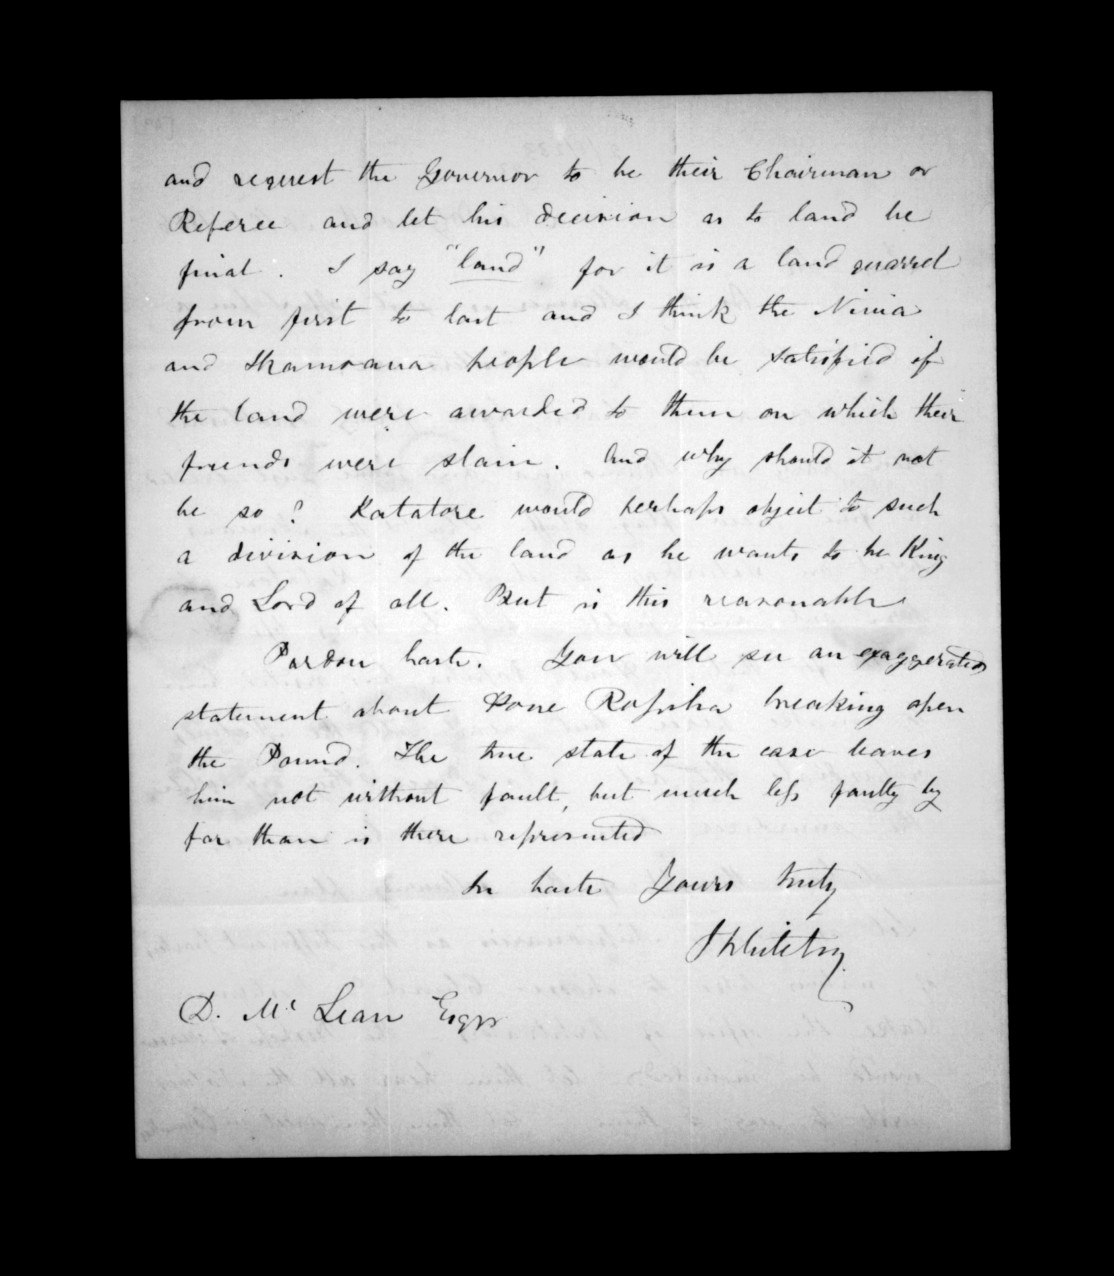 and request the Governor to be their Chairman or
Referee and let his decision as to land be
final. I say "land" for it is a land quarrel
from first to last and I think the Ninia
and Ikamoana people would be satisfied if
the land were awarded to them on which their
friends were slain. And why should it not
be so? Katatore would perhaps object to such
a division of the land as he wants to be King
and Lord of all. But is this reasonable
Pardon haste. You will see an exaggerated
statement about Pone Ropiha breaking open
the Pound. The true state of the case leaves
him not without fault, but much less faulty by
far than is there represented
In haste Yours truly
J Whiteley
D. McLean Esqr